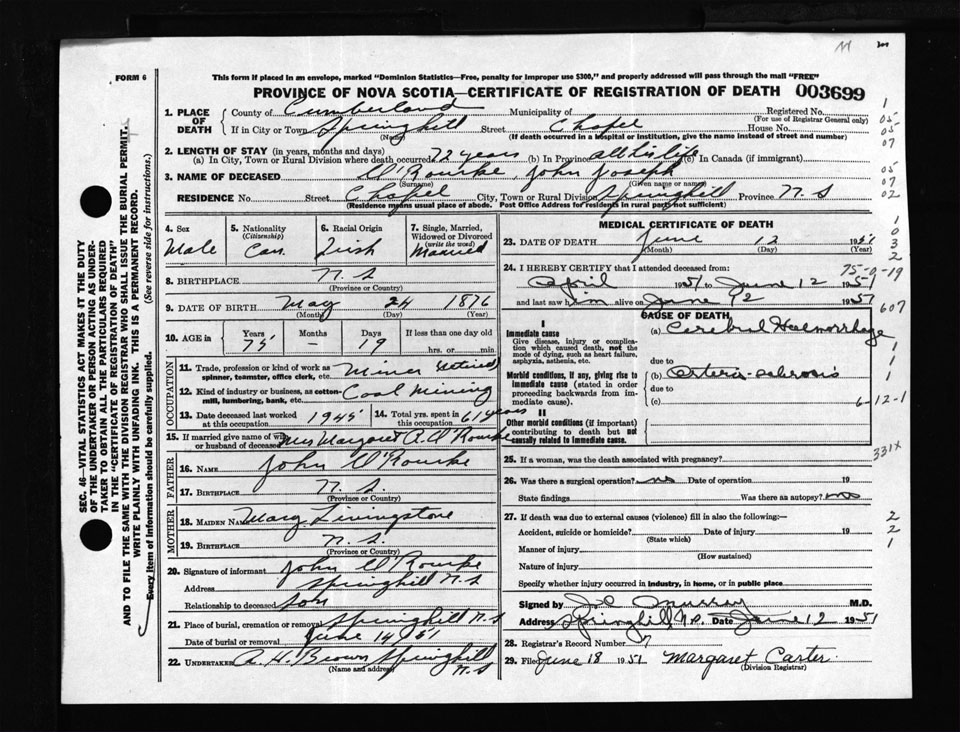 FORM 6
This form if placed in an envelope, marked "Dominion Statistics—Free, penalty for improper use $300," and properly addressed will pass through the mail "FREE"
PROVINCE OF NOVA SCOTIA—CERTIFICATE OF REGISTRATION OF DEATH 003699
1. PLACE OF DEATH
County of Cumberland Municipality of Registered No.
(For use of Registrar General only)
If in City or Town Springhill Street Chapel House No.
(Name) (If death occurred in a hospital or institution, give the name instead of street and number)
2. LENGTH OF STAY (in years, months and days)
(a) In City, Town or Rural Division where death occurred 72 years (b) In Province all his life (c) In Canada (if immigrant)
3. NAME OF DECEASED O'Rourke, John Joseph
(Surname) (Given name or names)
RESIDENCE No. Street Chapel City, Town or Rural Division Springhill Province N.S
(Residence means usual place of abode. Post Office Address for residents in rural parts not sufficient)
4. Sex
Male
5. Nationality
(Citizenship)
Can.
6. Racial Origin
Irish
7. Single, Married, Widowed or Divorced
(write the word)
Married
8. BIRTHPLACE N.S
(Province or Country)
9. DATE OF BIRTH May 24 1876
(Month) (Day) (Year)
10. AGE in Years Months Days If less than one day old
75 — 19 hrs. or min.
OCCUPATION
11. Trade, profession or kind of work as spinner, teamster, office clerk, etc. Miner retired
12. Kind of industry or business, as cotton-mill, lumbering, bank, etc. Coal Mining
13. Date deceased last worked at this occupation 1945
14. Total yrs. spent in this occupation 61 years
15. If married give name of wife or husband of deceased Mrs Margaret A. O'Rourke
FATHER
16. NAME John O'Rourke
17. BIRTHPLACE N.S.
(Province or Country)
MOTHER
18. MAIDEN NAME Mary Livingstone
19. BIRTHPLACE N.S.
(Province or Country)
20. Signature of informant John O'Rourke
Address Springhill N.S
Relationship to deceased Son
21. Place of burial, cremation or removal Springhill N.S
Date of burial or removal June 14 1951
22. UNDERTAKER A. H. Brown Springhill N.S
(Name and address)
MEDICAL CERTIFICATE OF DEATH
23. DATE OF DEATH June 12 1951
(Month) (Day) (Year)
24. I HEREBY CERTIFY that I attended deceased from:
April 1951 to June 12 1951
and last saw him alive on June 12 1951
CAUSE OF DEATH
I
Immediate cause
Give disease, injury or complication which caused death, not the mode of dying, such as heart failure, asphyxia, asthenia, etc.
(a) Cerebral Haemorrhage
due to
Morbid conditions, if any, giving rise to immediate cause (stated in order proceeding backwards from immediate cause).
(b) Arterio-sclerosis
due to
(c)
II
Other morbid conditions (if important) contributing to death but not causally related to immediate cause.
25. If a woman, was the death associated with pregnancy?
26. Was there a surgical operation? no Date of operation 19
State findings Was there an autopsy? no
27. If death was due to external causes (violence) fill in also the following:—
Accident, suicide or homicide? Date of injury 19
(State which)
Manner of injury
(How sustained)
Nature of injury
Specify whether injury occurred in industry, in home, or in public place
Signed by J.C Murray M.D.
Address Springhill, N.S. Date June 12 1951
28. Registrar's Record Number 7
29. Filed June 18 1951 Margaret Carter
(Division Registrar)
SEC. 46—VITAL STATISTICS ACT MAKES IT THE DUTY OF THE UNDERTAKER OR PERSON ACTING AS UNDERTAKER TO OBTAIN ALL THE PARTICULARS REQUIRED IN THE "CERTIFICATE OF REGISTRATION OF DEATH"
AND TO FILE THE SAME WITH THE DIVISION REGISTRAR WHO SHALL ISSUE THE BURIAL PERMIT.
WRITE PLAINLY WITH UNFADING INK. THIS IS A PERMANENT RECORD.
Every item of information should be carefully supplied. (See reverse side for instructions.)
1
05
05
07
05
07
02
1
0
3
2
75-0-19
607
1
1
1
6-12-1
331X
2
2
1